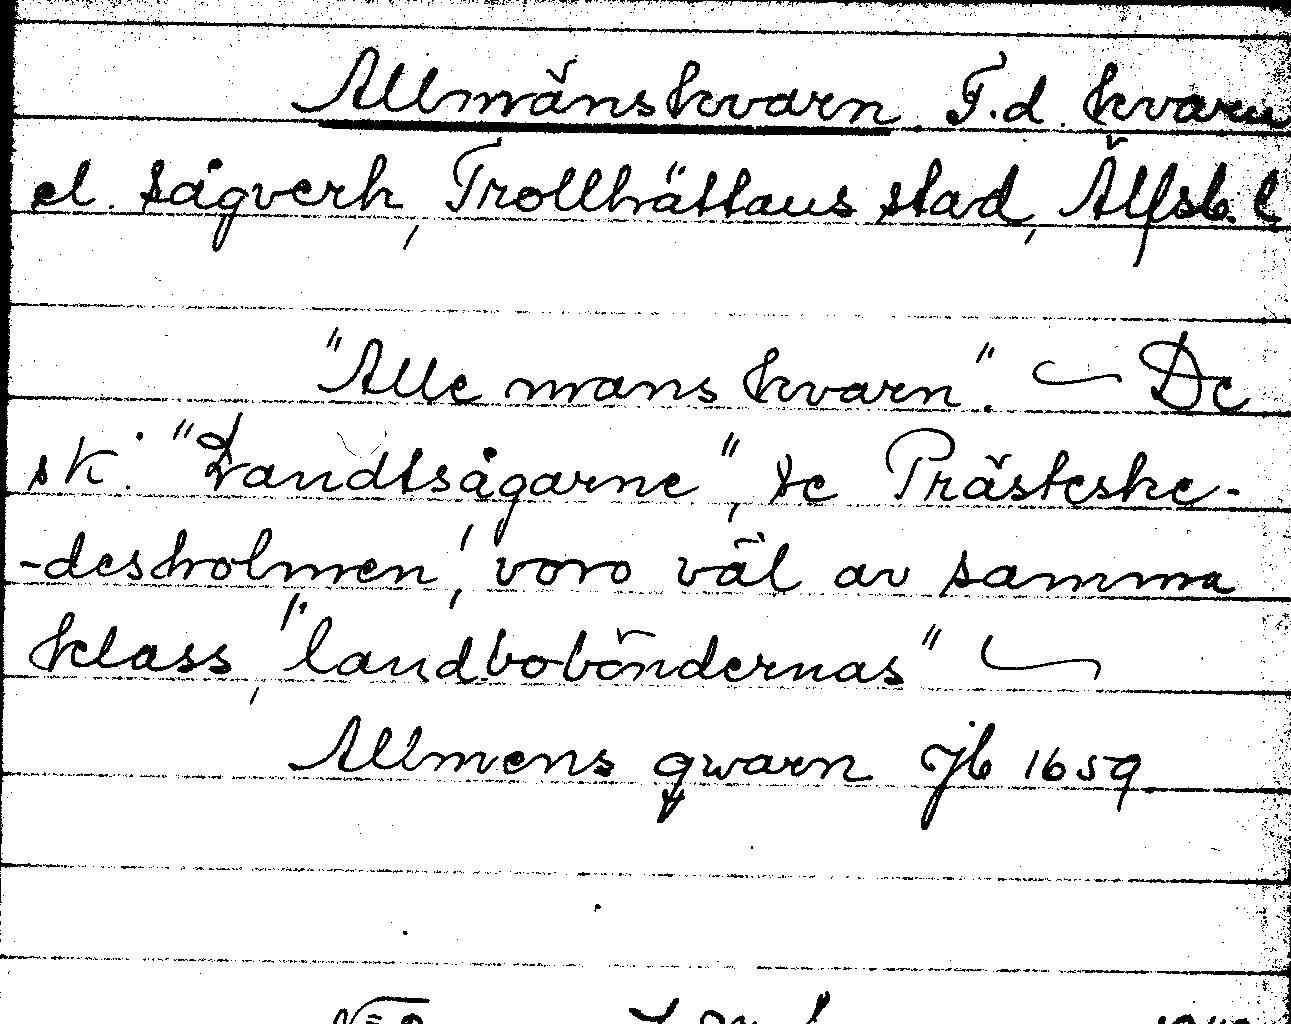 Allmänskvarn F.d. kvarn
el. sågverk, Trollhättans stad, Älfsb. l
"Alle mans kvarn". — De
sk. "Landtsågarne", se Prästeske-
-desholmen, voro väl av samma
klass, "landboböndernas" —
Allmens qwarn Jb 1659